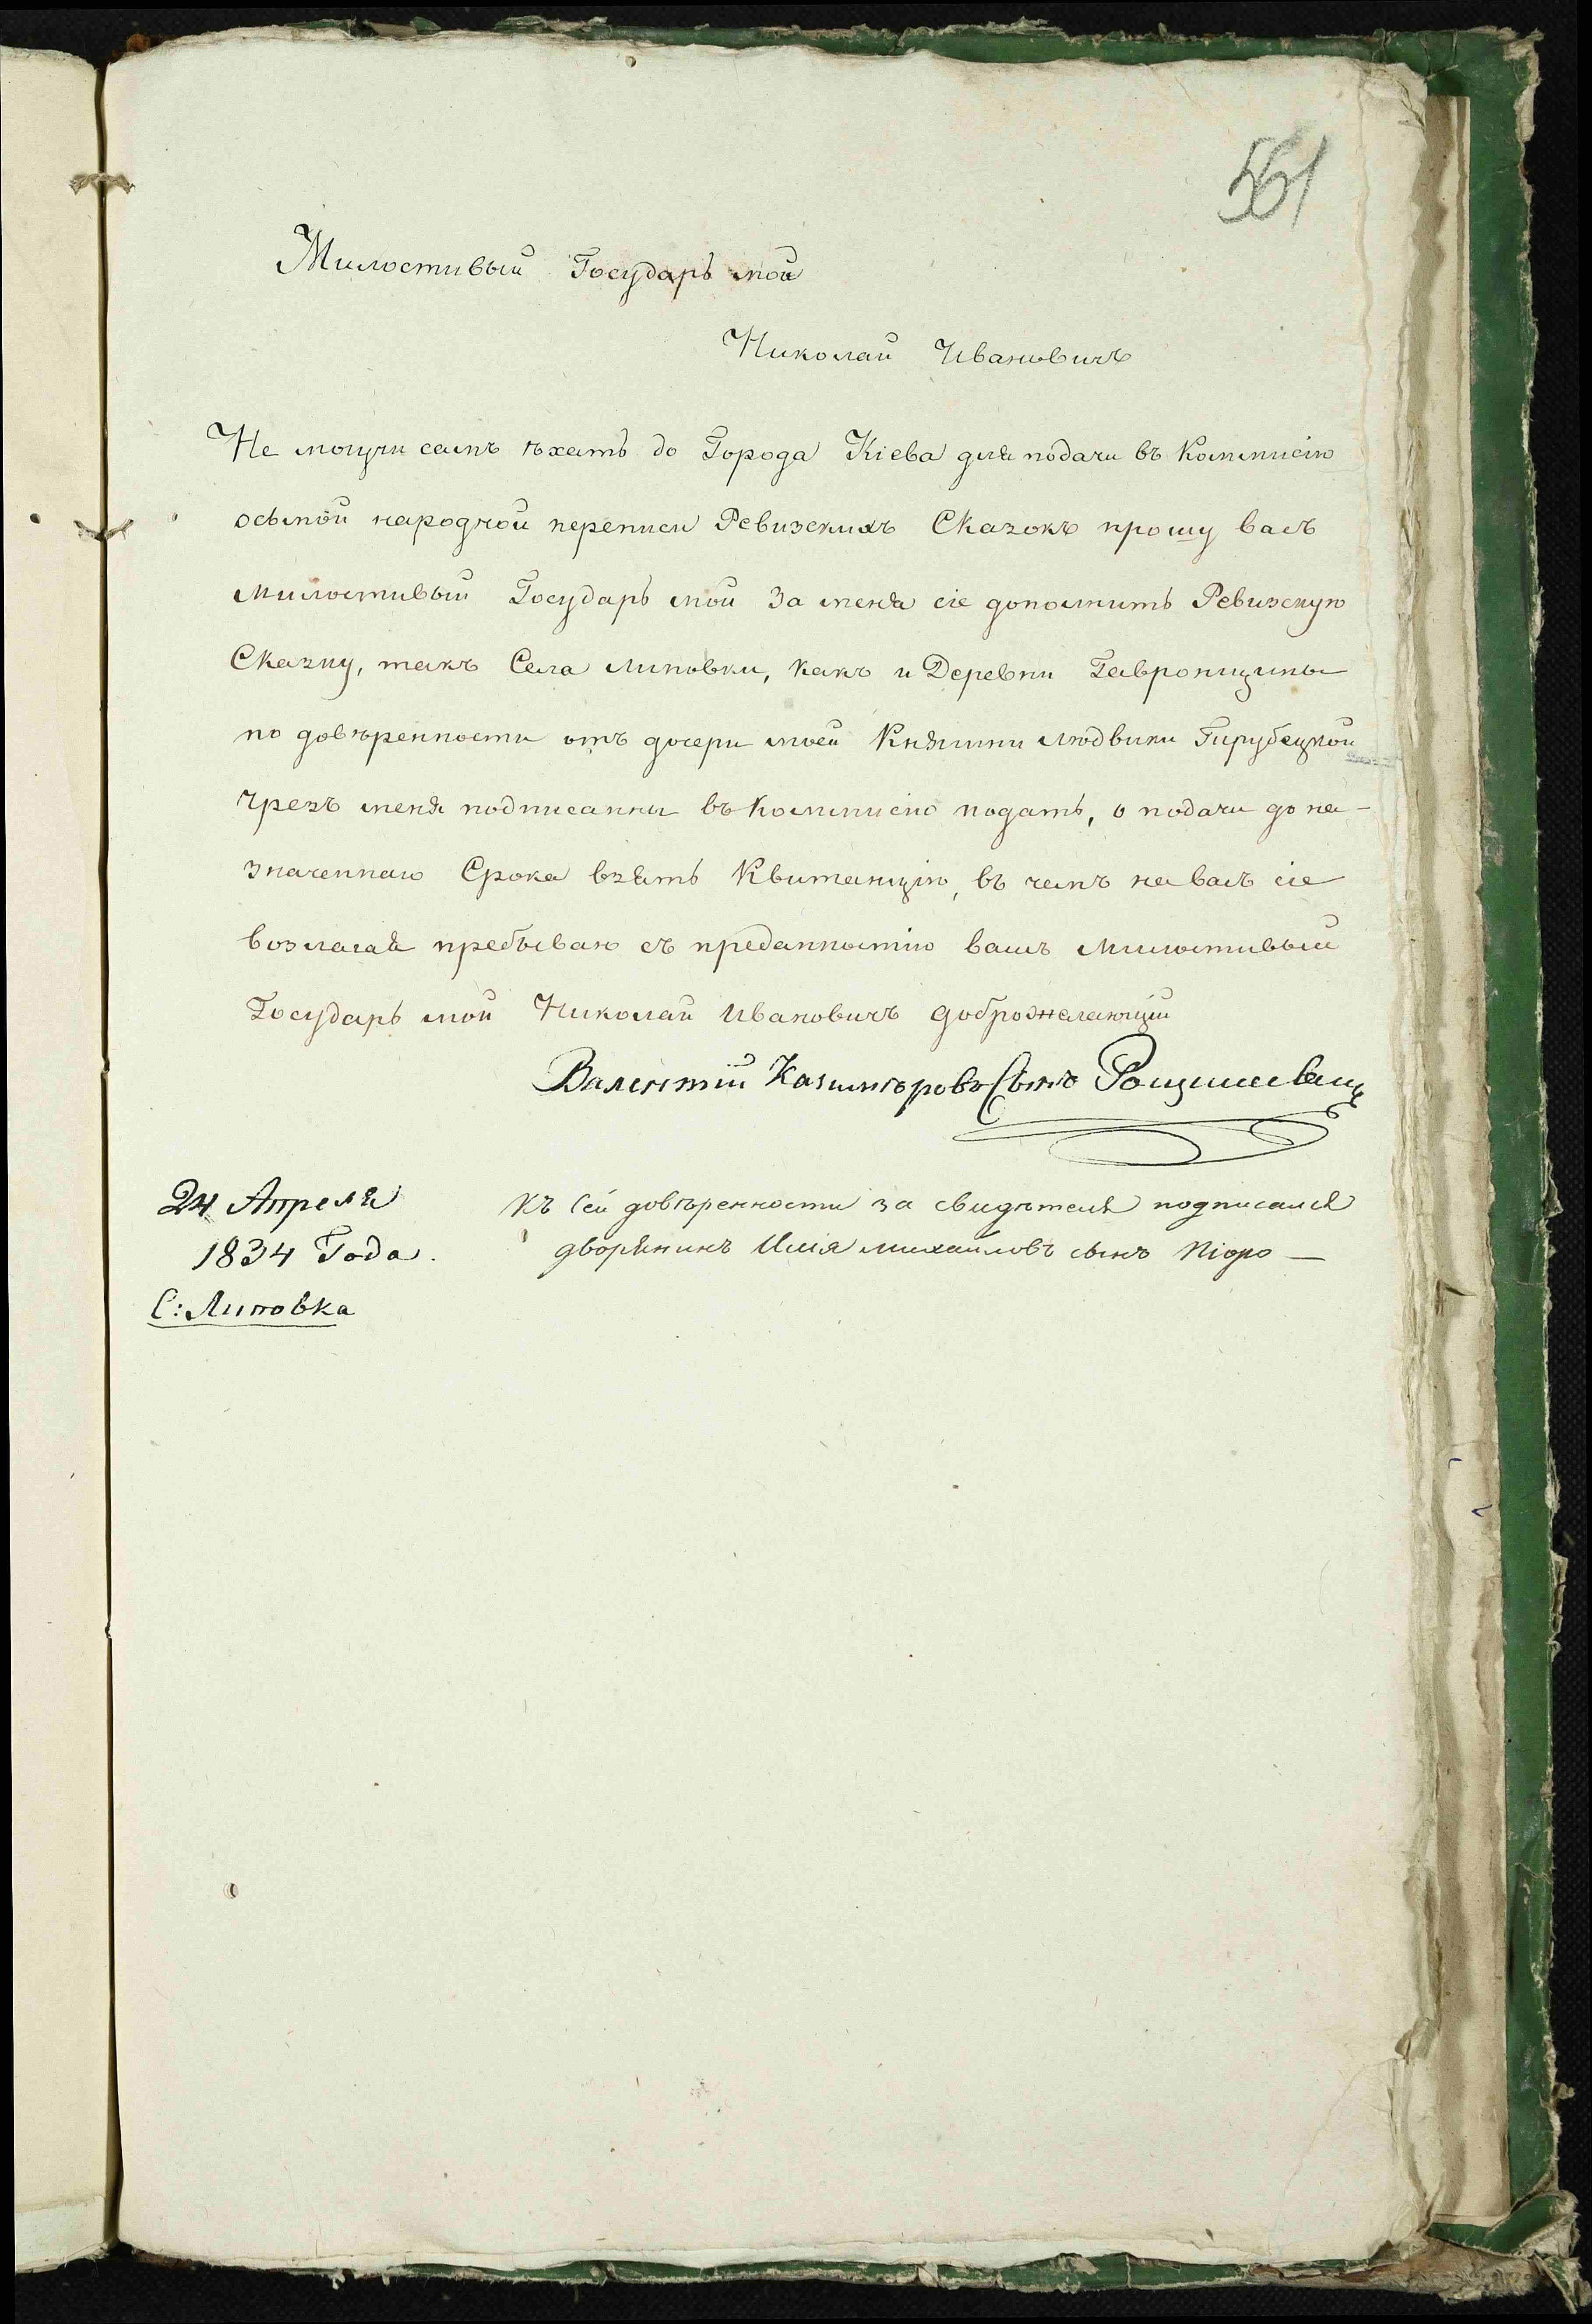 561
Милостивый Государь мой
Николай Ивановичъ
Не могучи самъ ѣхать до Города Кіева для подачи въ Коммисію
осьмой народной переписи Ревизскихъ Сказокъ прошу васъ
милостивый Государь мой за меня сіе дополнить Ревизскую
Сказку, такъ Села Липовки, какъ и Деревни Гавронщины
по довѣренности отъ дочери моей Княгини Людвики
чрезъ меня подписанны въ Коммисію подать, о подачи до на-
значеннаго Срока взять Квитанцію, въ чемъ на васъ сіе
возлагая пребываю съ преданностію вашъ милостивый
Государь мой Николай Ивановичъ доброжелающій
Валентій Казимѣровъ Сынъ
24 Апреля
1834 Года.
С: Липовка
Къ сей довѣренности за свидѣтеля подписался
дворянинъ Илія Михайловъ сынъ